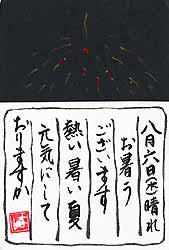 八月六日(水)晴れ
お暑う
ございます
熱い暑い夏
元気にして
おりますか